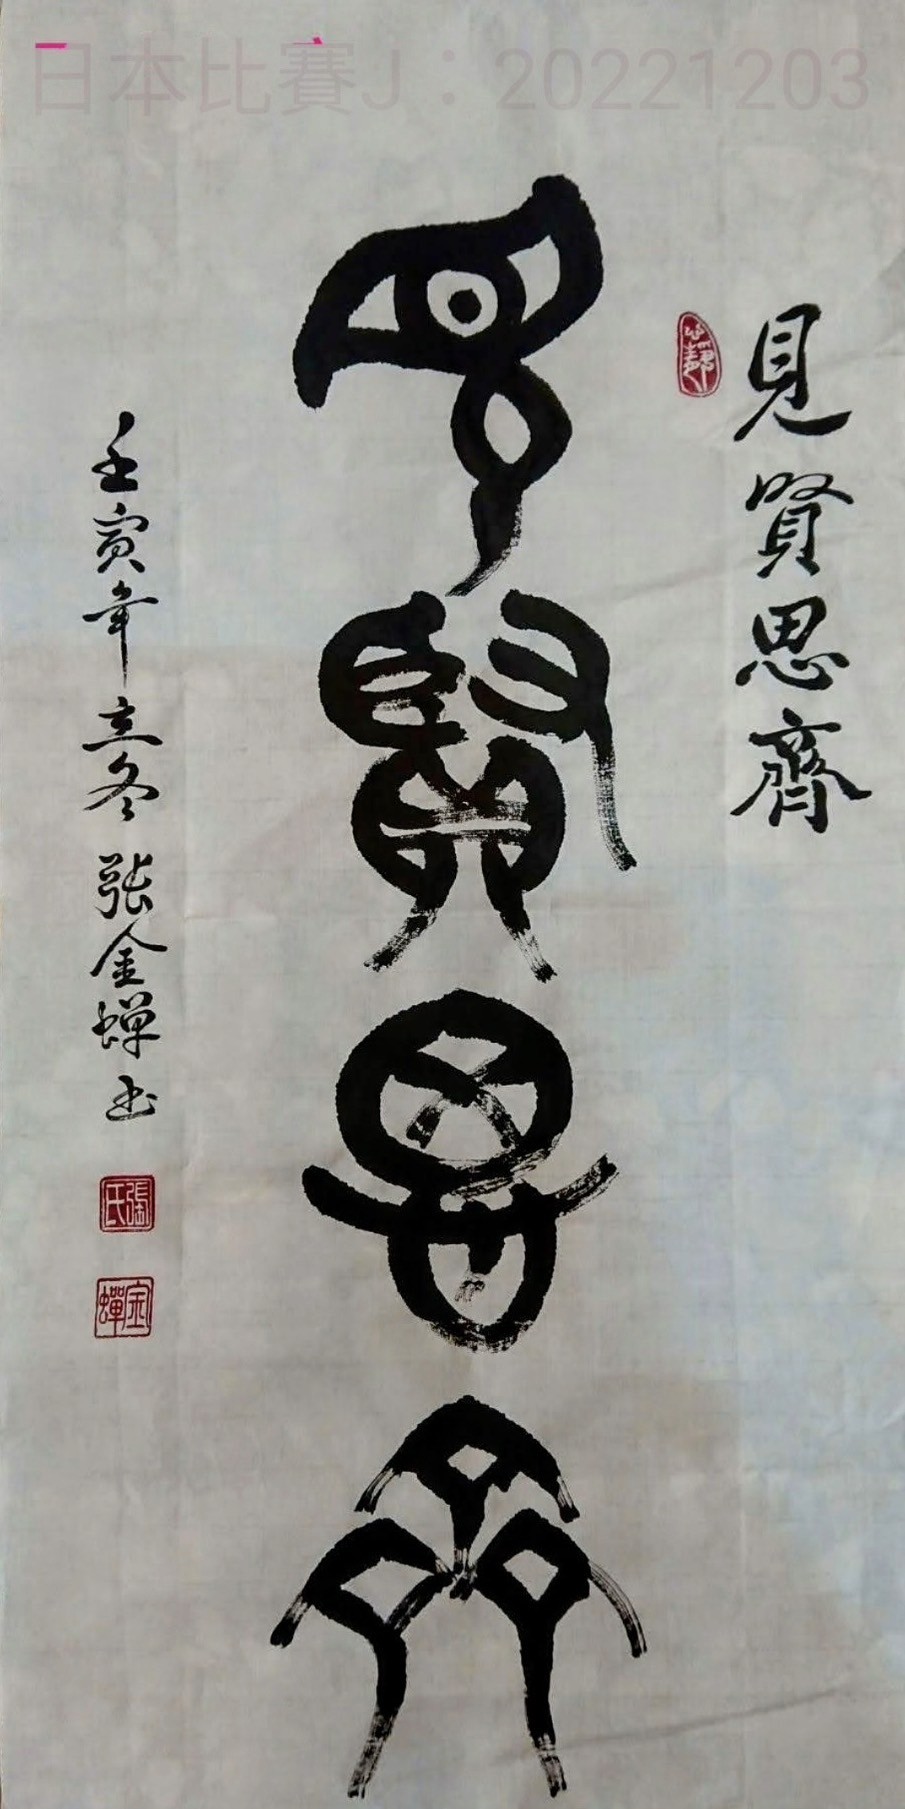 日本比賽J：20221203
見賢思齊
見賢思齊
壬寅年立冬 張金蟬书
張氏
金蟬